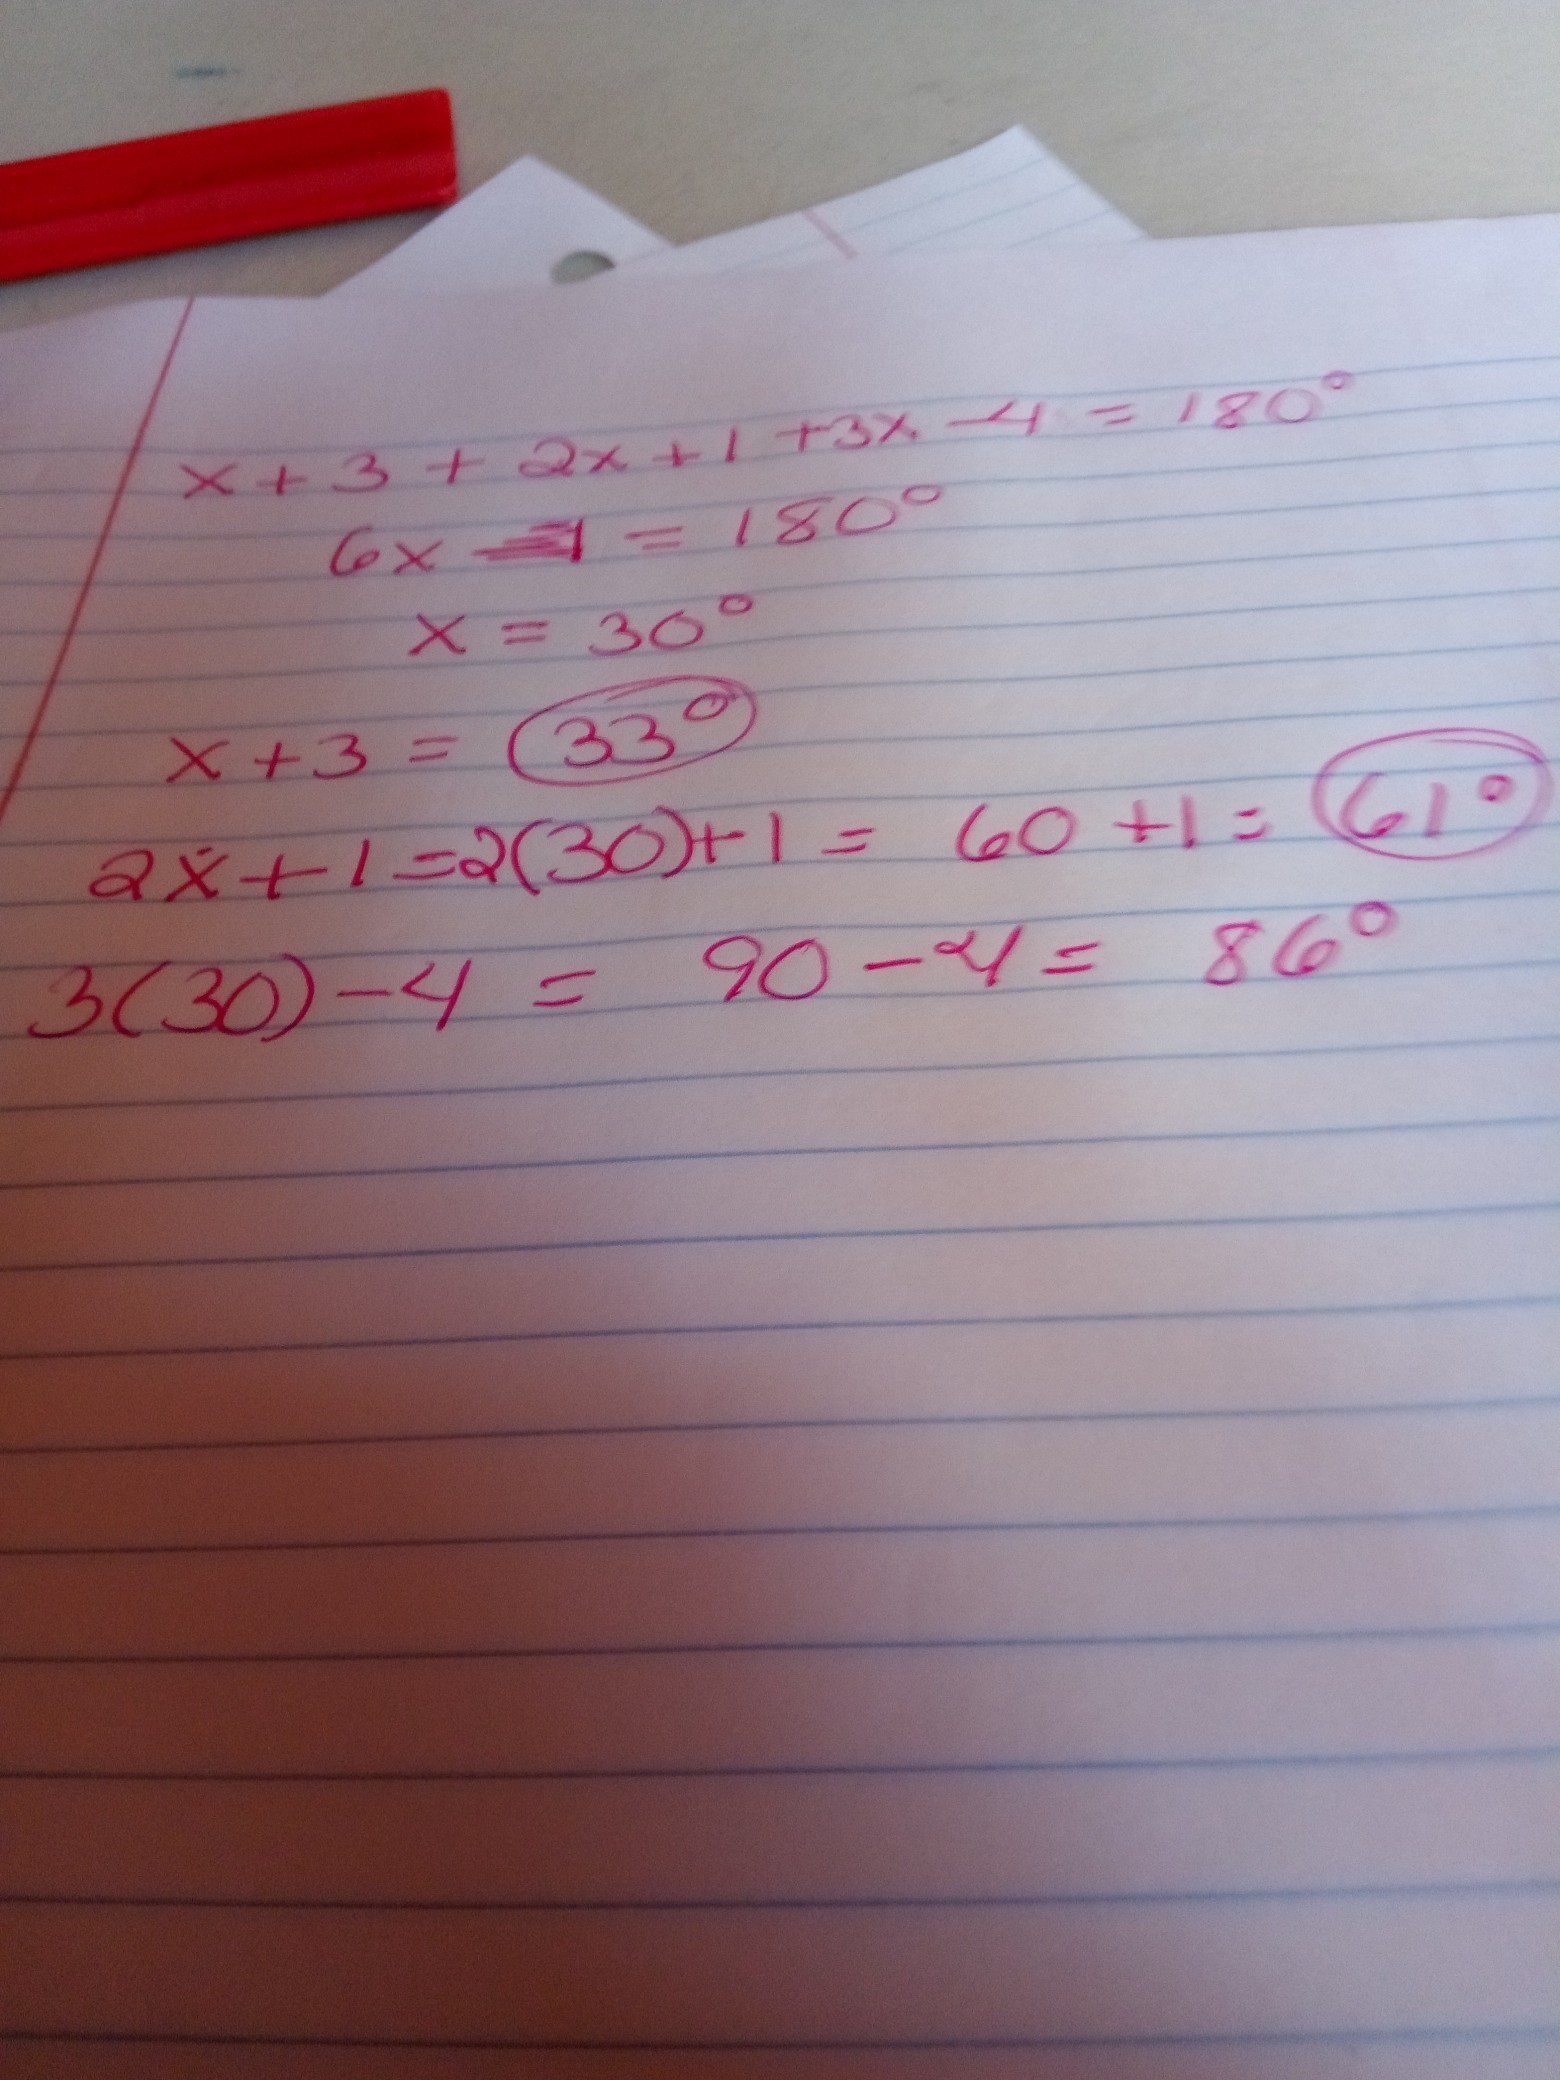 x + 3 + 2x + 1 + 3x - 4 = 180°
6x = 180°
x = 30°
x + 3 = 33°
2x + 1 = 2(30) + 1 = 60 + 1 = 61°
3(30) - 4 = 90 - 4 = 86°